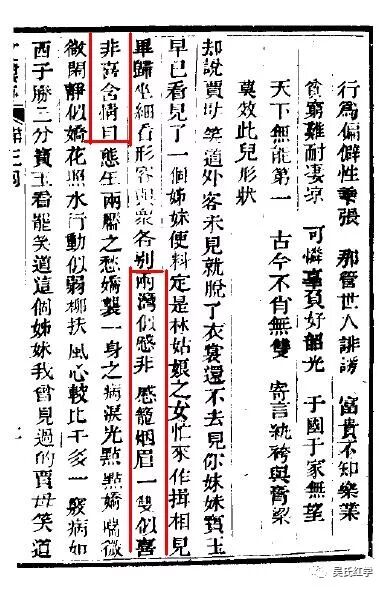 行爲偏僻性乖張 那管世人誹謗 富貴不知樂業
貧窮難耐凄凉 可憐辜負好韶光 于國于家無望
天下無能第一 古今不肖無雙 寄言紈袴與膏粱
莫效此兒形狀
却說賈母笑道外客未見就脱了衣裳還不去見你妹妹寶玉
早已看見了一個姊妹便料定是林姑娘之女忙來作揖相見
畢歸坐細看形容與衆各別兩灣似感非 感籠烟眉一雙似喜
非喜含情目態生兩靨之愁嬌襲一身之病淚光點點嬌喘微
微閑靜似嬌花照水行動似弱柳扶風心較比干多一竅病如
西子勝三分寶玉看罷笑道這個姊妹我曾見過的賈母笑道
第三回
吴氏红学